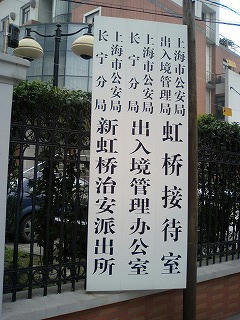 上海市公安局
出入境管理局
虹桥接待室
上海市公安局
长宁分局
出入境管理办公室
上海市公安局
长宁分局
新虹桥治安派出所